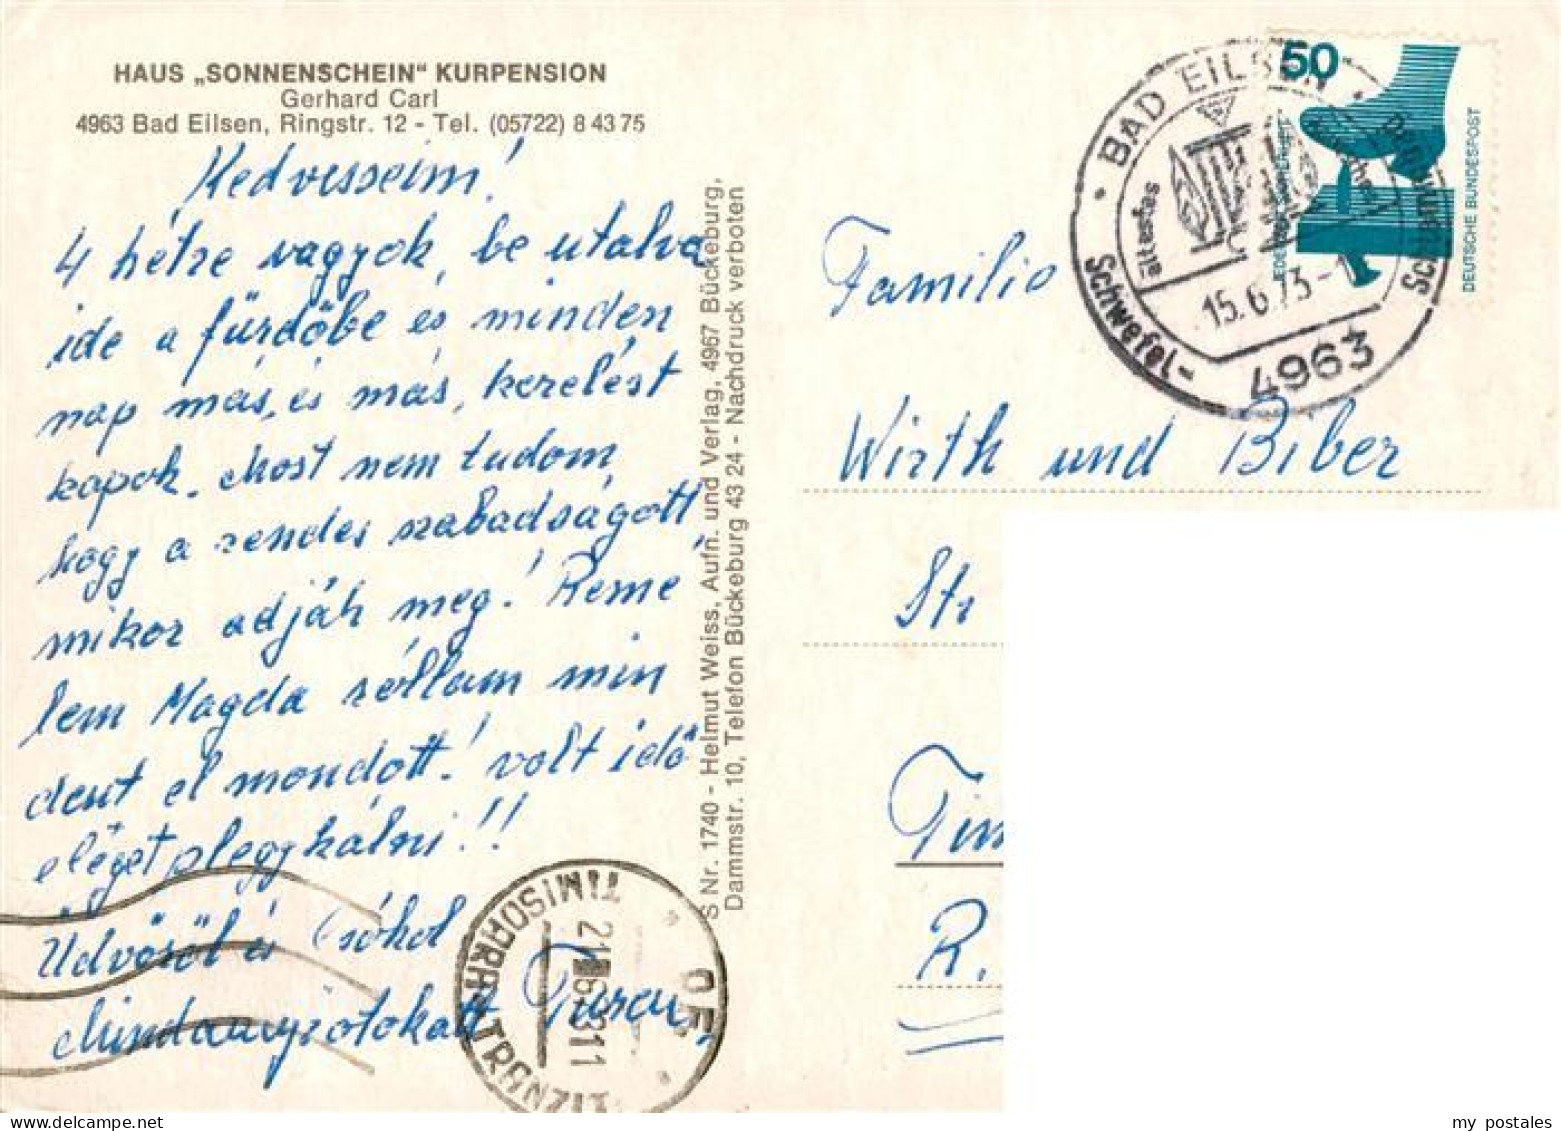 HAUS „SONNENSCHEIN" KURPENSION
Gerhard Carl
4963 Bad Eilsen, Ringstr. 12 - Tel. (05722) 8 43 75
Kedvesseim!
4 hétre vagyok, be utalva
ide a fürdőbe és minden
nap más, és más, kezelést
kapok. Most nem tudom
hogy a rendes szabadságott
mikor adják meg! Remé
lem Magda róllam min
dent el mondott! volt idő
eléget
Üdvözöl és Csókol
Mindannyiotokatt
S Nr. 1740 - Helmut Weiss, Aufn. und Verlag, 4967 Bückeburg,
Dammstr. 10, Telefon Bückeburg 43 24 - Nachdruck verboten
Familie
Wirth und Biber
Str
Tim
R.
50
DEUTSCHE BUNDESPOST
BAD EILSEN
ältestes
Schwefel-
15.6.73-1
4963
TIMISOARA * TRANZIT
my postales